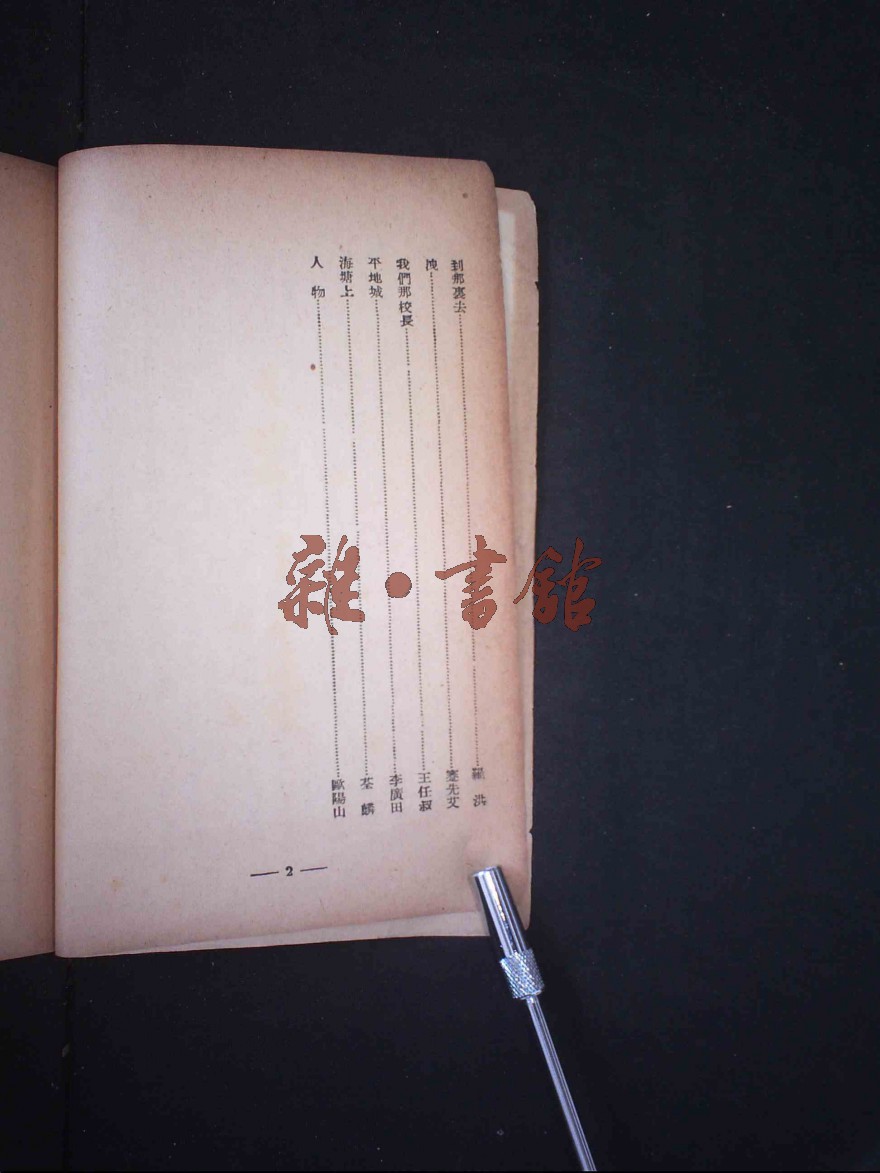 到那裏去……羅洪
洩……蹇先艾
我們那校長……王任叔
平地城……李廣田
海塘上……荃麟
人物……歐陽山
— 2 —
雜·書館